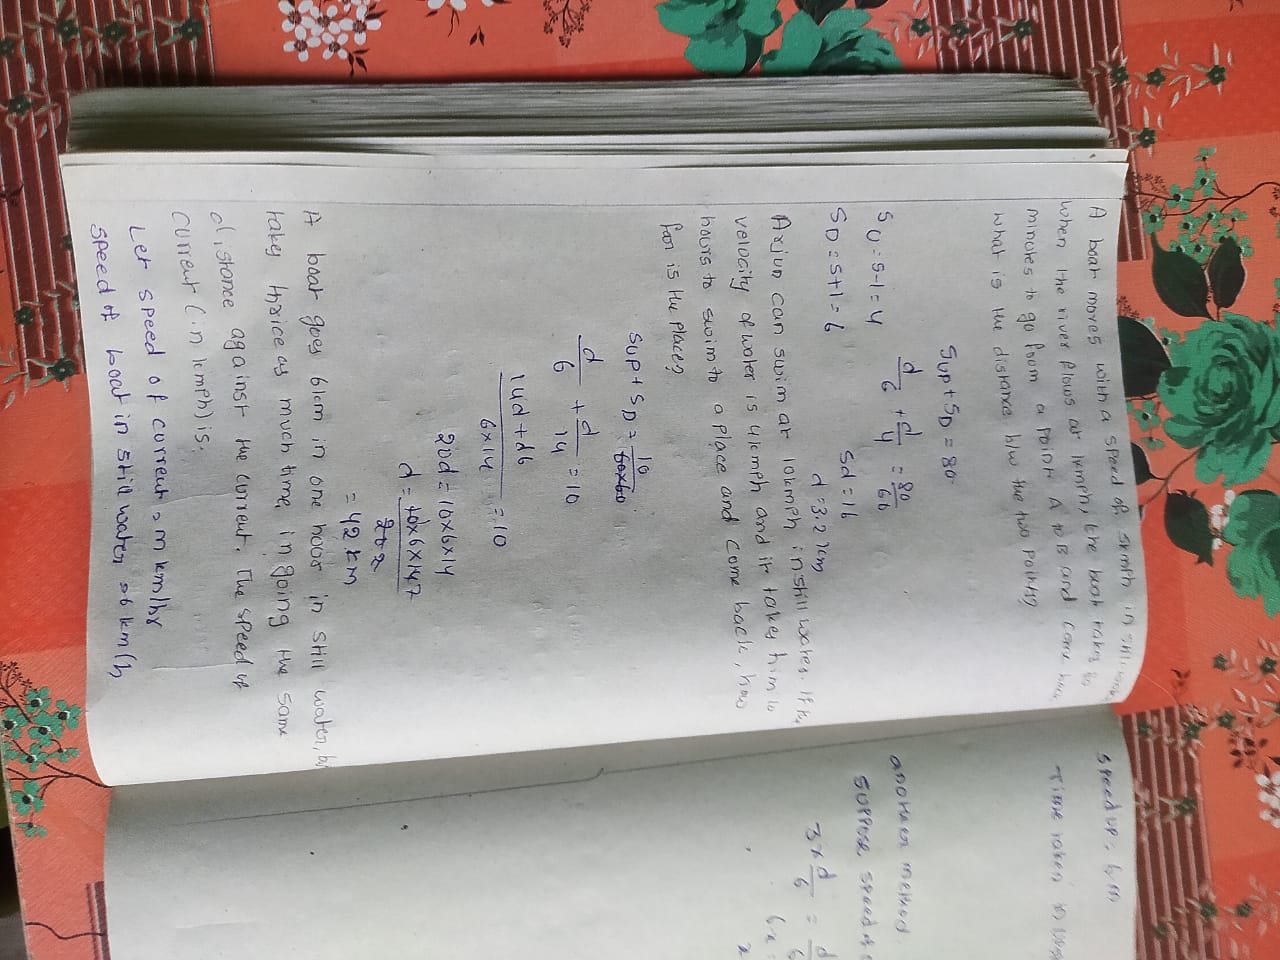 A boat moves with a speed of 5kmth in still
when the river flows at 1kmph, the boat takes 80
minutes to go from a point A to B and come
what is the distance b/w the two points?
Sup + SD = 80
SU = S-1 = 4
SD = S+1 = 6
d/6 + d/4 = 80/60
5d = 16
d = 3.2 km
Arjun can swim at 10kmph in still water. If the
velocity of water is 4kmph and it takes him 10
hours to swim to a place and come back, how
far is the place?
Sup + SD = 10/60x60
d/6 + d/14 = 10
14d + d6 / 6x14 = 10
20d = 10x6x14
d = 10x6x147 / 202
= 42 km
A boat goes 6km in one hour in still water, but
takes thrice as much time in going the same
distance against the current. The speed of
current (in kmph) is:
Let speed of current = m km/hr
speed of boat in still water = 6 km/h
speed up = 6-m
Time taken in
another method
suppose, speed
3x d/6 = d/6
6x
x